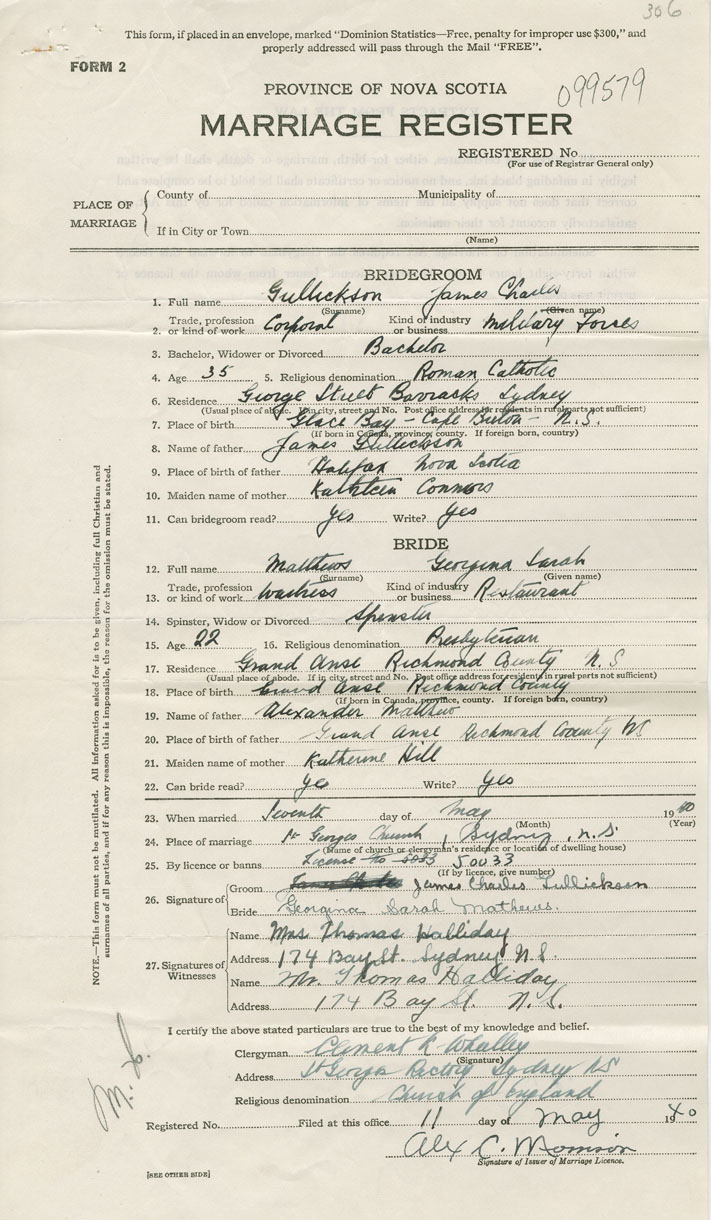 306
This form, if placed in an envelope, marked "Dominion Statistics—Free, penalty for improper use $300," and
properly addressed will pass through the Mail "FREE".
FORM 2
PROVINCE OF NOVA SCOTIA
099579
MARRIAGE REGISTER
REGISTERED No.
(For use of Registrar General only)
PLACE OF MARRIAGE
County of Municipality of
If in City or Town
(Name)
BRIDEGROOM
1. Full name Gullickson James Charles
(Surname) (Given name)
2. Trade, profession or kind of work Corporal Kind of industry or business Military Forces
3. Bachelor, Widower or Divorced Bachelor
4. Age 35 5. Religious denomination Roman Catholic
6. Residence George Street Barracks Sydney
(Usual place of abode. If in city, street and No. Post office address for residents in rural parts not sufficient)
7. Place of birth Glace Bay - Cape Breton - N.S.
(If born in Canada, province, county. If foreign born, country)
8. Name of father James Gullickson
9. Place of birth of father Halifax Nova Scotia
10. Maiden name of mother Kathleen Connors
11. Can bridegroom read? Yes Write? Yes
BRIDE
12. Full name Matthews Georgina Sarah
(Surname) (Given name)
13. Trade, profession or kind of work Waitress Kind of industry or business Restaurant
14. Spinster, Widow or Divorced Spinster
15. Age 22 16. Religious denomination Presbyterian
17. Residence Grand Anse Richmond County N.S
(Usual place of abode. If in city, street and No. Post office address for residents in rural parts not sufficient)
18. Place of birth Grand Anse Richmond County
(If born in Canada, province, county. If foreign born, country)
19. Name of father Alexander Matthew
20. Place of birth of father Grand Anse Richmond County NS
21. Maiden name of mother Katherine Hill
22. Can bride read? Yes Write? Yes
23. When married Seventh day of May 1940
(Month) (Year)
24. Place of marriage St Georges Church, Sydney, N.S.
(Name of church or clergyman's residence or location of dwelling house)
25. By licence or banns License no 5033 50033
(If by licence, give number)
26. Signature of
Groom James Charles Gullickson
Bride Georgina Sarah Mathews.
27. Signatures of Witnesses
Name Mrs. Thomas Halliday
Address 174 Bay St. Sydney N.S.
Name Mr. Thomas Halliday
Address 174 Bay St. N.S.
I certify the above stated particulars are true to the best of my knowledge and belief.
Clergyman Clement R Whalley
(Signature)
Address St Georges Rectory Sydney NS
Religious denomination Church of England
Registered No. Filed at this office 11 day of May 1940
Alex C. Morrison
Signature of Issuer of Marriage Licence.
[SEE OTHER SIDE]
NOTE.—This form must not be mutilated. All information asked for is to be given, including full Christian and
surnames of all parties, and if for any reason this is impossible, the reason for the omission must be stated.